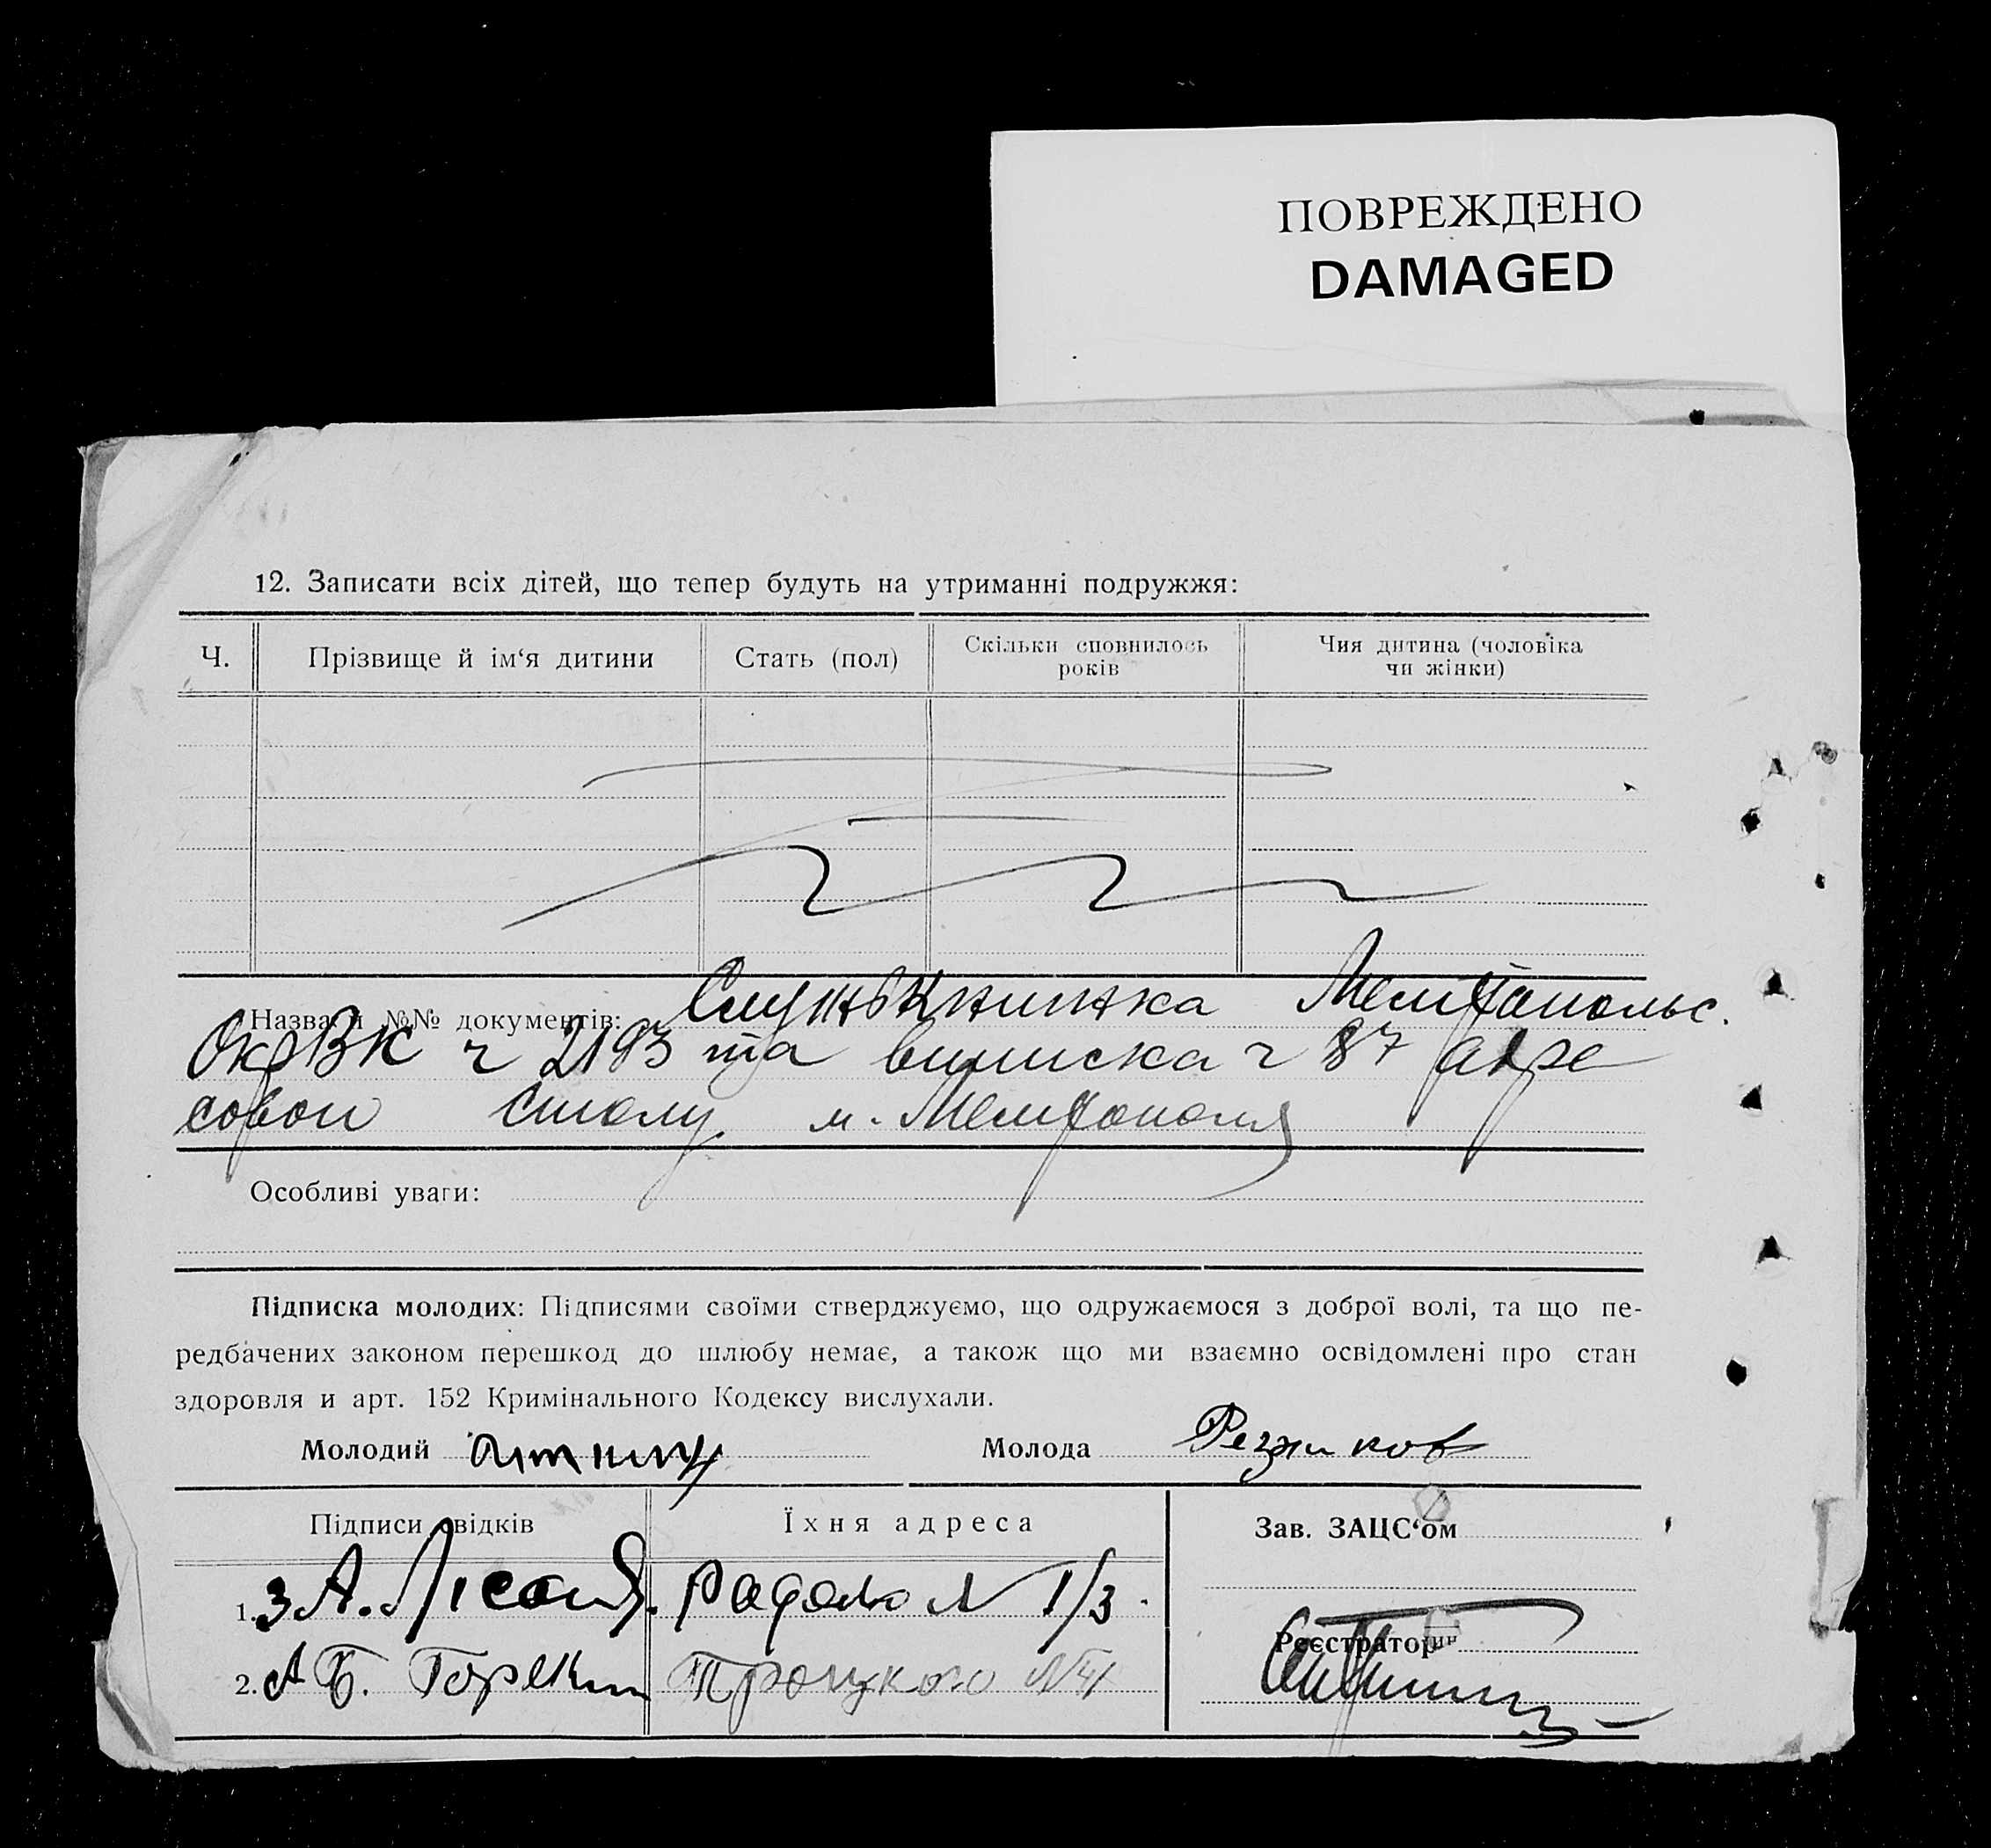 ПОВРЕЖДЕНО
DAMAGED
12. Записати всіх дітей, що тепер будуть на утриманні подружжя:
Ч. Прізвище й ім‘я дитини Стать (пол) Скільки сповнилось років Чия дитина (чоловіка чи жінки)
Назва й №№ документів: Службкнижка Мелітопольс.
ОкрВК ч 2193 та виписка ч 87 адре
сового столу м. Мелітополя
Особливі уваги:
Підписка молодих: Підписями своїми стверджуємо, що одружаємося з доброї волі, та що пе-
редбачених законом перешкод до шлюбу немає, а також що ми взаємно освідомлені про стан
здоровля и арт. 152 Кримінального Кодексу вислухали.
Молодий Молода Резников
Підписи свідків Їхня адреса Зав. ЗАЦС‘ом
1. N 1/3.
Реєстратор
2. А Б. Горекин Троцкого N